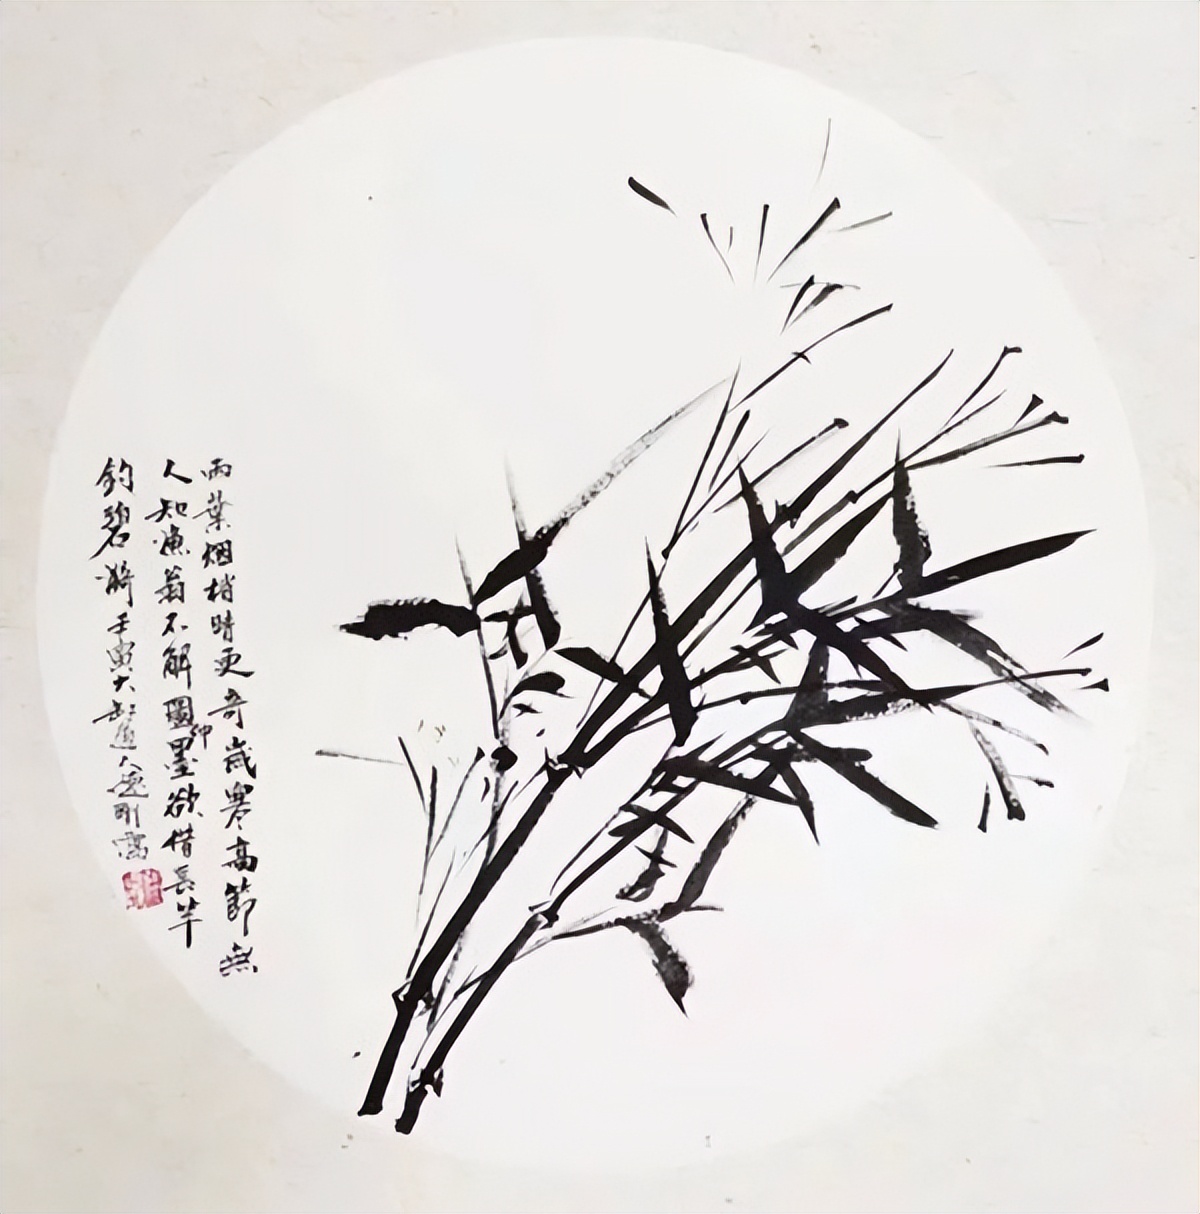 雨葉烟梢晴更奇歲寒高節無
人知漁翁不解圖中墨欲借長竿
釣碧漪壬寅大道人剛寫